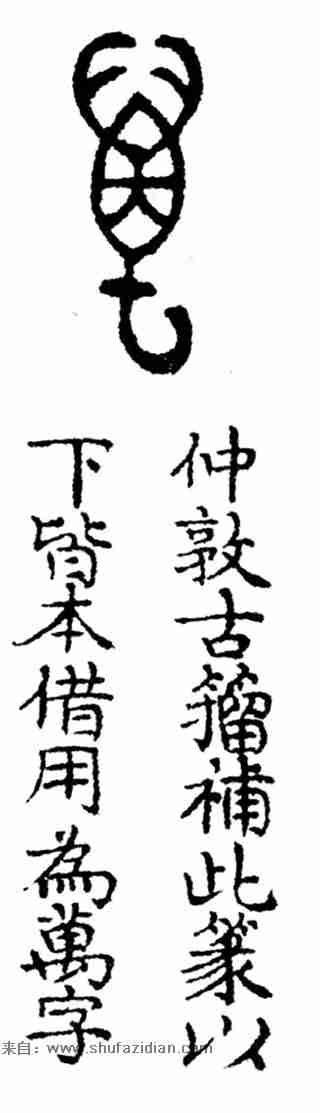 萬
仲敦古籀補此篆以
下皆本借用為萬字
来自：www.shufazidian.com